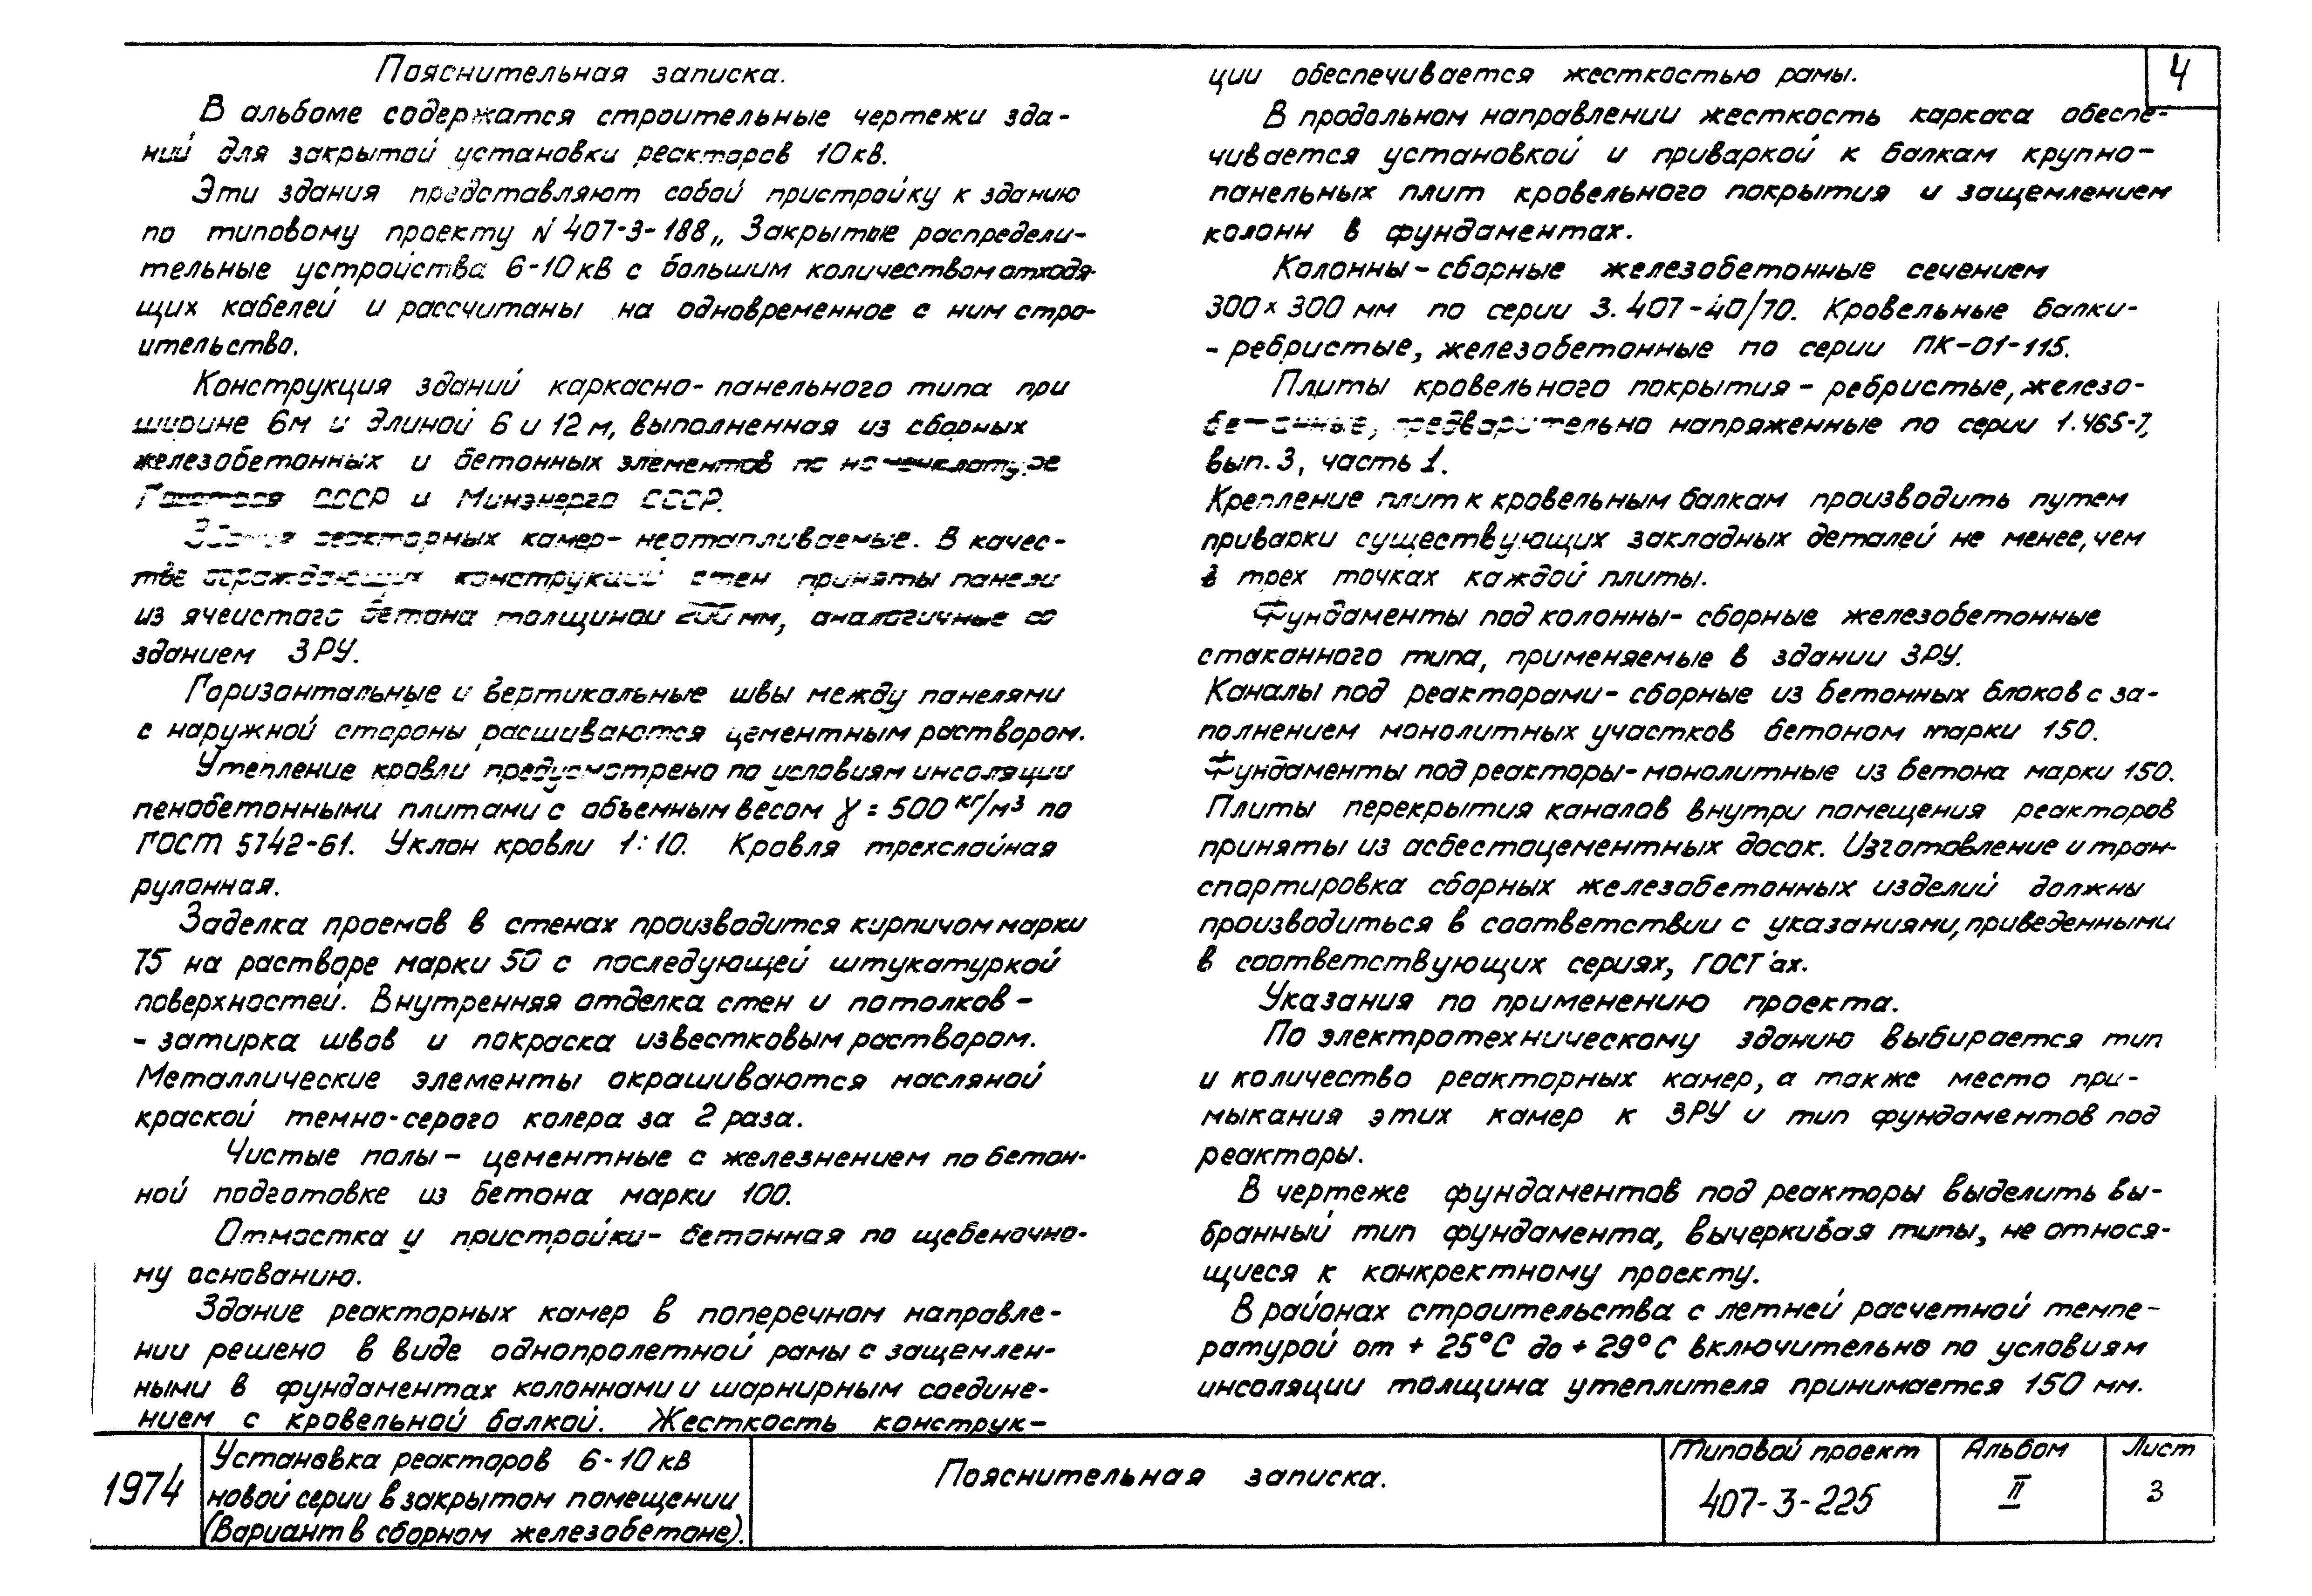 Пояснительная записка.
В альбоме содержатся строительные чертежи зда-
ний для закрытой установки реакторов 10кв.
Эти здания представляют собой пристройку к зданию
по типовому проекту N 407-3-188 „Закрытые распредели-
тельные устройства 6-10кВ с большим количеством отходя-
щих кабелей и рассчитаны на одновременное с ним стро-
ительство.
Конструкция зданий каркасно-панельного типа при
ширине 6м и длиной 6 и 12м, выполненная из сборных
железобетонных и бетонных элементов по номенклатуре
Госстроя СССР и Минэнерго СССР.
Здания реакторных камер- неотапливаемые. В качес-
тве ограждающих конструкций стен приняты панели
из ячеистого бетона толщиной 200мм, аналогичные со
зданием ЗРУ.
Горизонтальные и вертикальные швы между панелями
с наружной стороны расшиваются цементным раствором.
Утепление кровли предусмотрено по условиям инсоляции
пенобетонными плитами с объемным весом γ = 500 кг/м³ по
ГОСТ 5742-61. Уклон кровли 1:10. Кровля трехслойная
рулонная.
Заделка проемов в стенах производится кирпичом марки
75 на растворе марки 50 с последующей штукатуркой
поверхностей. Внутренняя отделка стен и потолков -
- затирка швов и покраска известковым раствором.
Металлические элементы окрашиваются масляной
краской темно-серого колера за 2 раза.
Чистые полы - цементные с железнением по бетон-
ной подготовке из бетона марки 100.
Отмостка у пристройки- бетонная по щебеночно-
му основанию.
Здание реакторных камер в поперечном направле-
нии решено в виде однопролетной рамы с защемлен-
ными в фундаментах колоннами и шарнирным соедине-
нием с кровельной балкой. Жесткость конструк-
4
ции обеспечивается жесткостью рамы.
В продольном направлении жесткость каркаса обеспе-
чивается установкой и приваркой к балкам крупно-
панельных плит кровельного покрытия и защемлением
колонн в фундаментах.
Колонны - сборные железобетонные сечением
300×300 мм по серии 3.407-40/70. Кровельные балки-
- ребристые, железобетонные по серии ПК-01-115.
Плиты кровельного покрытия - ребристые, железо-
бетонные, предварительно напряженные по серии 1.465-7,
вып. 3, часть 1.
Крепление плит к кровельным балкам производить путем
приварки существующих закладных деталей не менее, чем
в трех точках каждой плиты.
Фундаменты под колонны- сборные железобетонные
стаканного типа, применяемые в здании ЗРУ.
Каналы под реакторами- сборные из бетонных блоков с за-
полнением монолитных участков бетоном марки 150.
Фундаменты под реакторы- монолитные из бетона марки 150.
Плиты перекрытия каналов внутри помещения реакторов
приняты из асбестоцементных досок. Изготовление и тран-
спортировка сборных железобетонных изделий должны
производиться в соответствии с указаниями, приведенными
в соответствующих сериях, ГОСТ'ах.
Указания по применению проекта.
По электротехническому зданию выбирается тип
и количество реакторных камер, а также место при-
мыкания этих камер к ЗРУ и тип фундаментов под
реакторы.
В чертеже фундаментов под реакторы выделить вы-
бранный тип фундамента, вычеркивая типы, не относя-
щиеся к конкретному проекту.
В районах строительства с летней расчетной темпе-
ратурой от + 25°С до + 29°С включительно по условиям
инсоляции толщина утеплителя принимается 150 мм.
1974
Установка реакторов 6-10кВ
новой серии в закрытом помещении
(Вариант в сборном железобетоне).
Пояснительная записка.
Типовой проект
407-3-225
Альбом
II
Лист
3